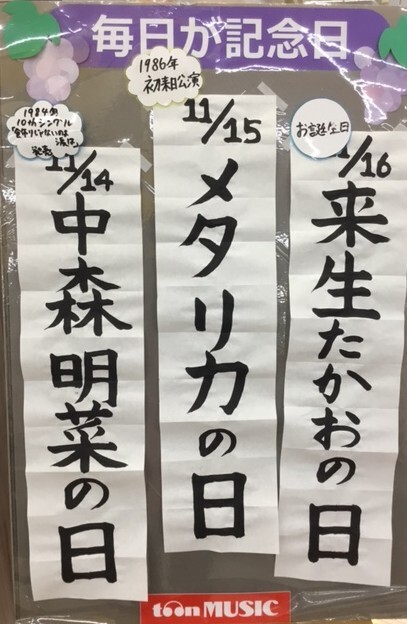 毎日が記念日
1984年
10thシングル
11/14
中森明菜の日
1986年
初来日公演
11/15
メタリカの日
お誕生日
1/16
来生たかおの日
toonMUSIC